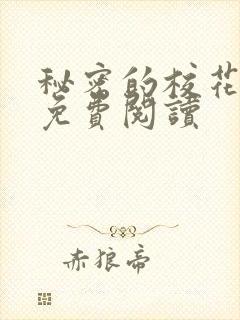 秘密的校花
免費閱讀
赤狼帝